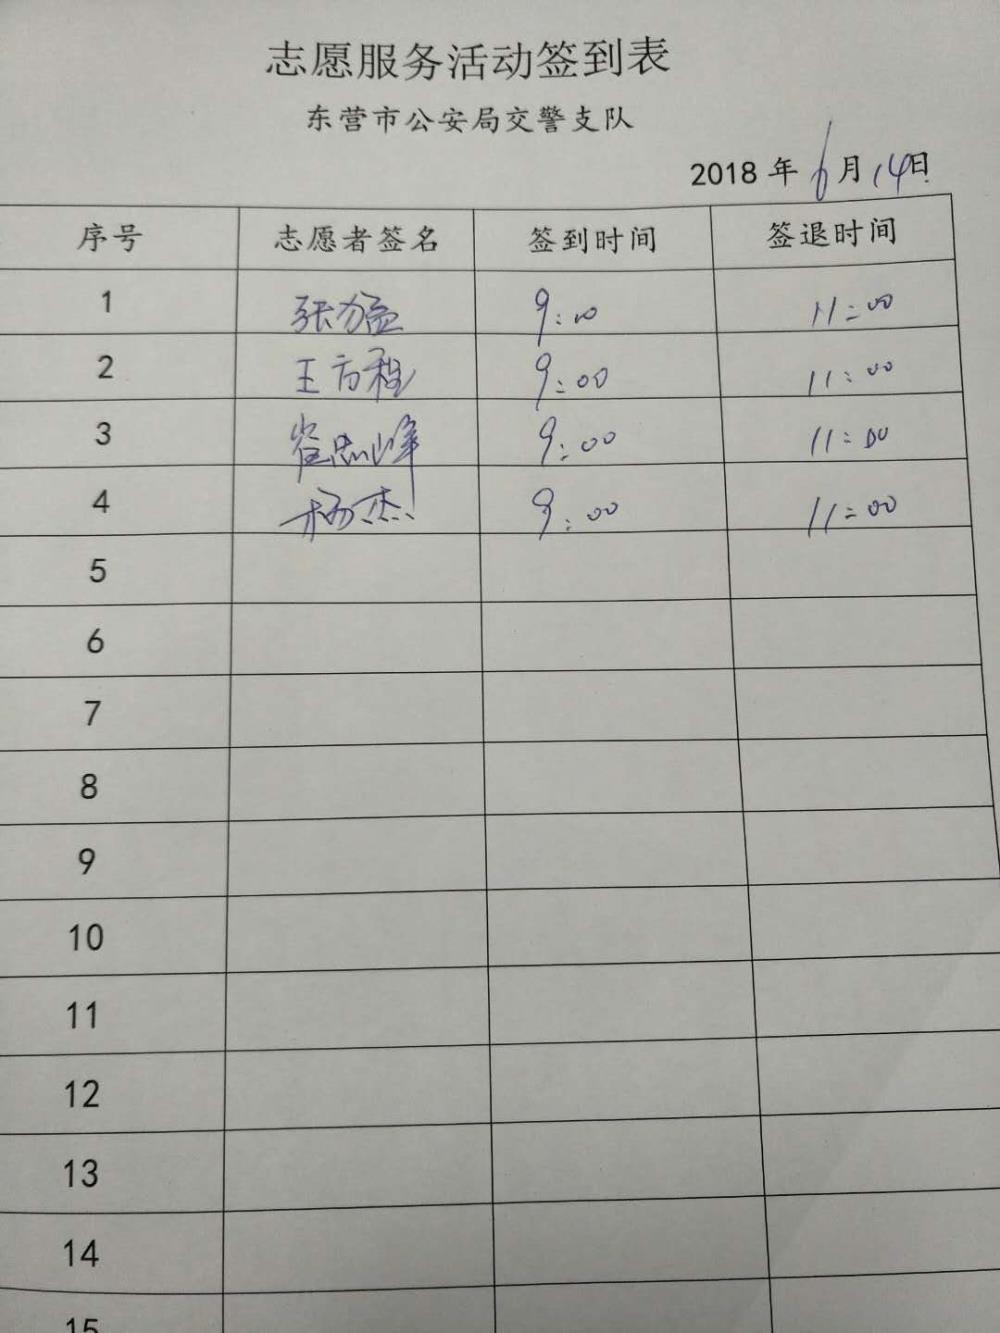 志愿服务活动签到表
东营市公安局交警支队
2018 年 6 月 14 日
序号 志愿者签名 签到时间 签退时间
1 张 9:00 11:00
2 王方程 9:00 11:00
3 崔忠峰 9:00 11:00
4 杨杰 9:00 11:00
5
6
7
8
9
10
11
12
13
14
15